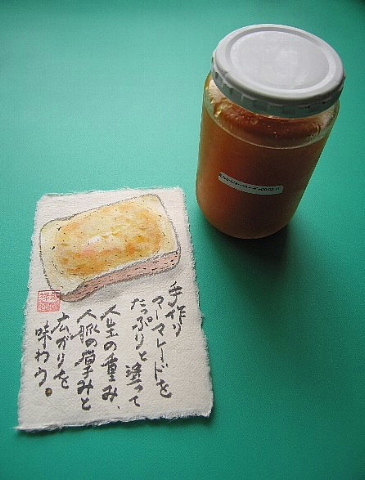 手作り
マーマレードを
たっぷりと塗って
人生の重み、
人脈の厚みと
広がりを
味わう。